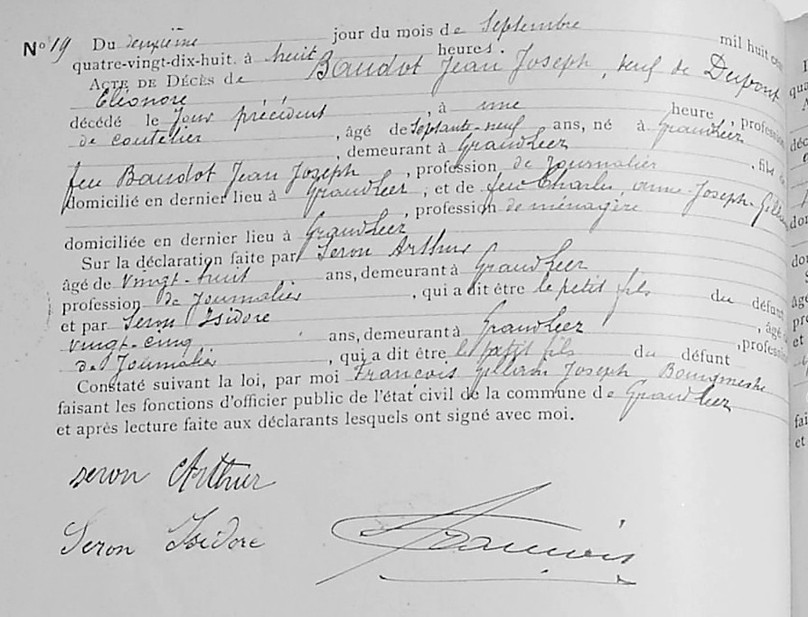 N° 19 Du deuxième jour du mois de Septembre mil huit cent
quatre-vingt-dix-huit. à huit heures.
ACTE DE DÉCÈS de Baudot Jean Joseph, veuf de Dupont
Eléonore
décédé le Jour précédent, à une heure, profession
de coutelier, âgé de Septante-neuf ans, né à Grandleez
, demeurant à Grandleez, fils de
feu Baudot Jean Joseph, profession de Journalier
domicilié en dernier lieu à Grandleez, et de feu Charlier, anne-Joseph-
, profession de ménagère
domiciliée en dernier lieu à Grandleez
Sur la déclaration faite par Seron Arthur
âgé de vingt-huit ans, demeurant à Grandleez
profession de Journalier, qui a dit être le petit fils du défunt
et par Seron Isidore, âgé
vingt-cinq ans, demeurant à Grandleez, profession
de Journalier, qui a dit être le petit fils du défunt
Constaté suivant la loi, par moi Francois Joseph Bourgmestre
faisant les fonctions d'officier public de l'état civil de la commune de Grandleez
et après lecture faite aux déclarants lesquels ont signé avec moi.
Seron Arthur
Seron Isidore
Francois